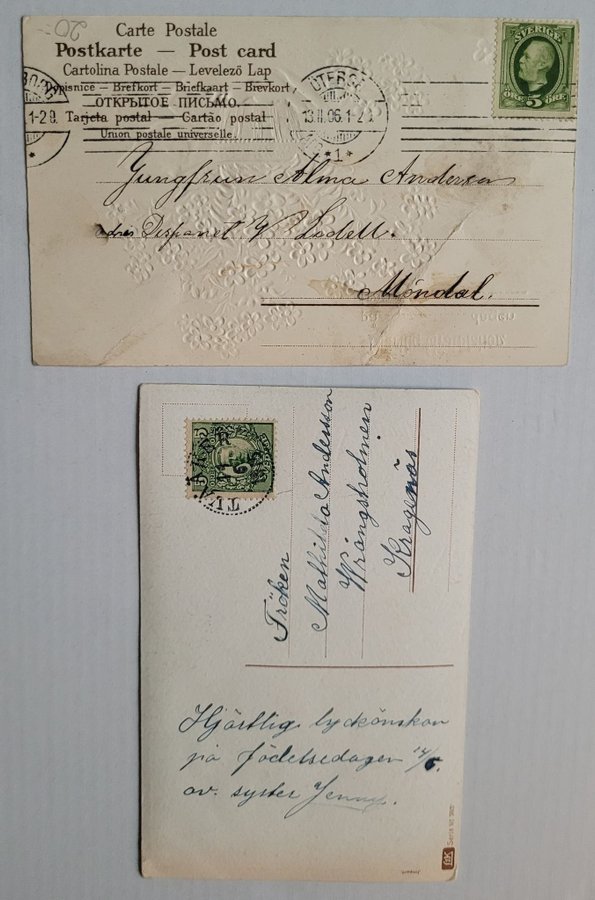 Carte Postale
Postkarte — Post card
Cartolina Postale — Levelező Lap
Dopisnice — Brefkort — Briefkaart — Brevkort
ОТКРЫТОЕ ПИСЬМО.
Tarjeta postal — Cartão postal
Union postale universelle.
20-
SVERIGE
5
ÖRE
1-2
*1*
Jungfrun Alma Anderson
Dispanet Lodell.
Möndal.
Fröken
Mathilda Andersson
Wrångsholmen
Kragenäs
Hjärtlig lyckönskan
på födelsedagen 14/5.
av. syster Jenny.